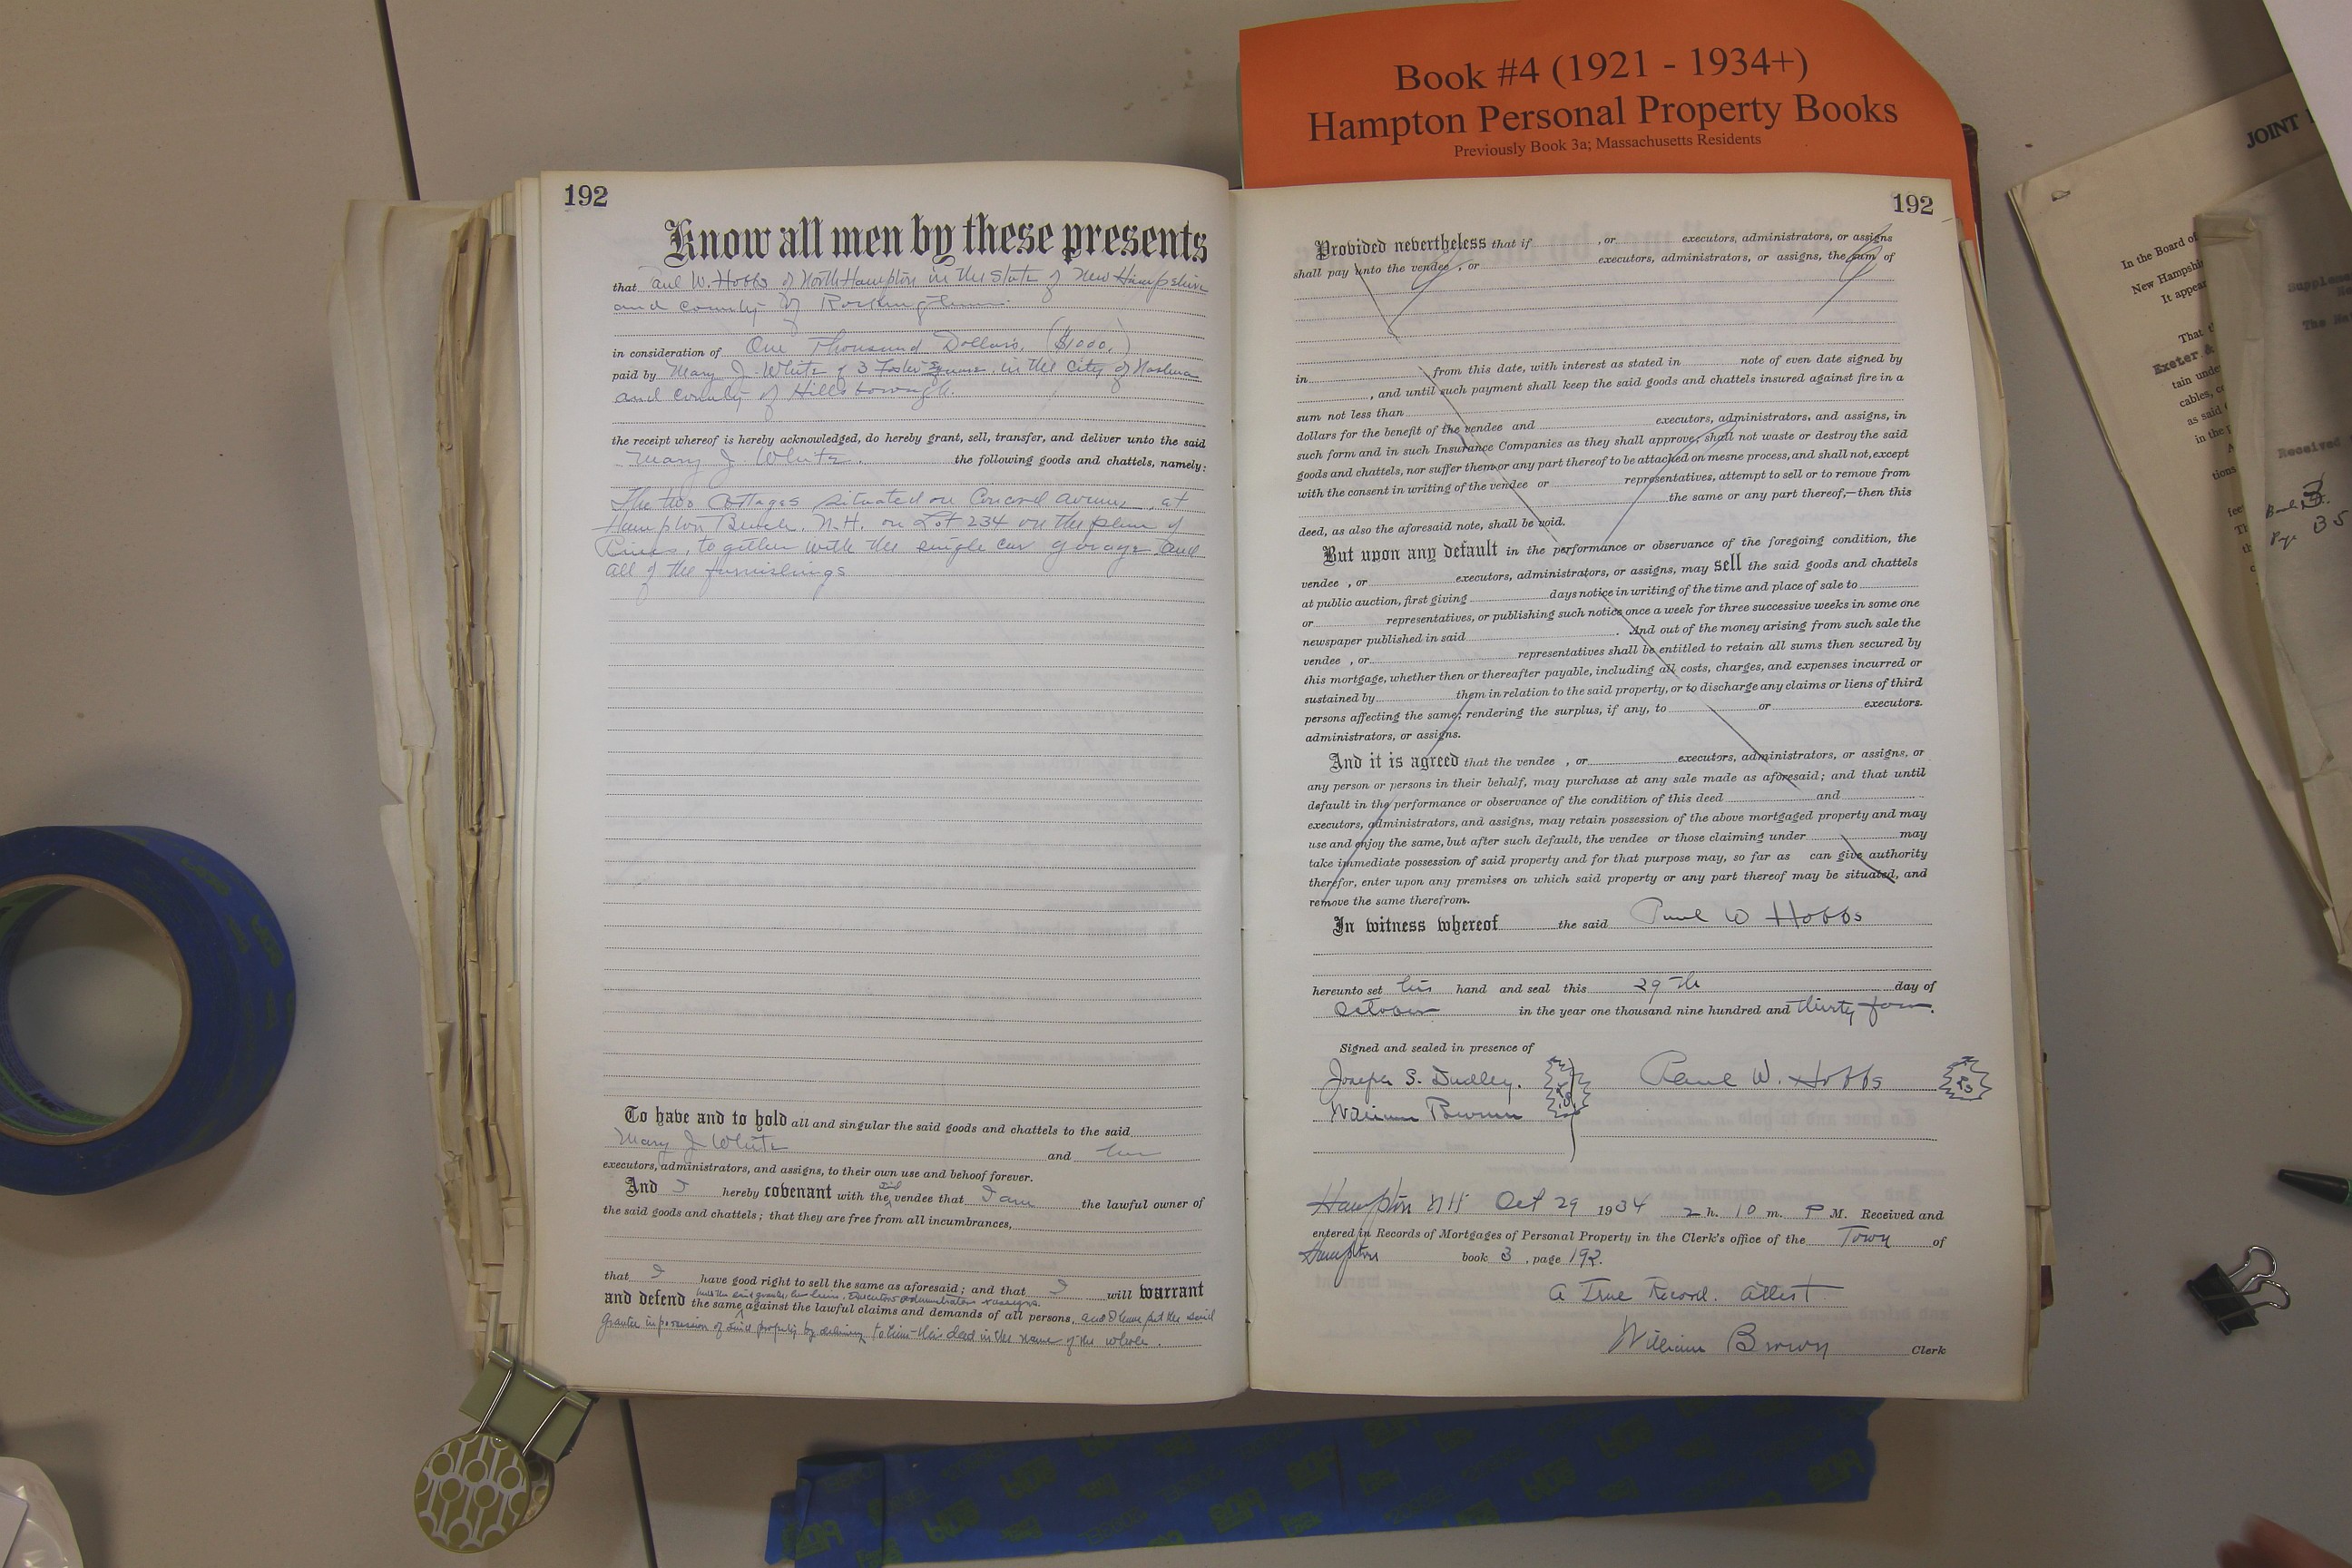 Book #4 (1921 - 1934+)
Hampton Personal Property Books
Previously Book 3a; Massachusetts Residents
192
Know all men by these presents
that Paul W. Hobbs of North Hampton in the State of New Hampshire
and county of Rockingham.
in consideration of One Thousand Dollars, ($1000.)
paid by Mary J. White of 3 Foster Square, in the City of Nashua
and county of Hillsborough.
the receipt whereof is hereby acknowledged, do hereby grant, sell, transfer, and deliver unto the said
Mary J. White. the following goods and chattels, namely:
The two Cottages situated on Concord avenue, at
Hampton Beach. N.H. on Lot 234 on the plan of
together with the single car garage and
all of the furnishings
To have and to hold all and singular the said goods and chattels to the said
Mary J White and her
executors, administrators, and assigns, to their own use and behoof forever.
And I hereby covenant with the said vendee that I am the lawful owner of
the said goods and chattels; that they are free from all incumbrances,
that I have good right to sell the same as aforesaid; and that I will warrant
and defend the same against the lawful claims and demands of all persons, and I have put the said
with the said grantee, her heirs, executors administrators & assigns.
Grantee in possession of said property by delivering to him this deed in the name of the whole.
192
Provided nevertheless that if , or executors, administrators, or assigns
shall pay unto the vendee , or executors, administrators, or assigns, the sum of
in from this date, with interest as stated in note of even date signed by
, and until such payment shall keep the said goods and chattels insured against fire in a
sum not less than
dollars for the benefit of the vendee and executors, administrators, and assigns, in
such form and in such Insurance Companies as they shall approve, shall not waste or destroy the said
goods and chattels, nor suffer them or any part thereof to be attached on mesne process, and shall not, except
with the consent in writing of the vendee or representatives, attempt to sell or to remove from
the same or any part thereof,—then this
deed, as also the aforesaid note, shall be void.
But upon any default in the performance or observance of the foregoing condition, the
vendee , or executors, administrators, or assigns, may sell the said goods and chattels
at public auction, first giving days notice in writing of the time and place of sale to
or representatives, or publishing such notice once a week for three successive weeks in some one
newspaper published in said . And out of the money arising from such sale the
vendee , or representatives shall be entitled to retain all sums then secured by
this mortgage, whether then or thereafter payable, including all costs, charges, and expenses incurred or
sustained by them in relation to the said property, or to discharge any claims or liens of third
persons affecting the same; rendering the surplus, if any, to or executors.
administrators, or assigns.
And it is agreed that the vendee , or executors, administrators, or assigns, or
any person or persons in their behalf, may purchase at any sale made as aforesaid; and that until
default in the performance or observance of the condition of this deed and
executors, administrators, and assigns, may retain possession of the above mortgaged property and may
use and enjoy the same, but after such default, the vendee or those claiming under may
take immediate possession of said property and for that purpose may, so far as can give authority
therefor, enter upon any premises on which said property or any part thereof may be situated, and
remove the same therefrom.
In witness whereof the said Paul W Hobbs
hereunto set his hand and seal this 29th day of
October in the year one thousand nine hundred and thirty four.
Signed and sealed in presence of
Joseph S. Dudley. Paul W. Hobbs
William Brown
Hampton NH Oct 29 1934 2 h. 10 m. P M. Received and
entered in Records of Mortgages of Personal Property in the Clerk's office of the Town of
Hampton book 3, page 192.
A True Record. Attest.
William Brown Clerk
JOINT
In the Board of
New Hampshi
It appear
That t
Exeter &
tain unde
cables, c
as said
in the
tions
Supplem
The Na
Received
Book 3.
Page 35